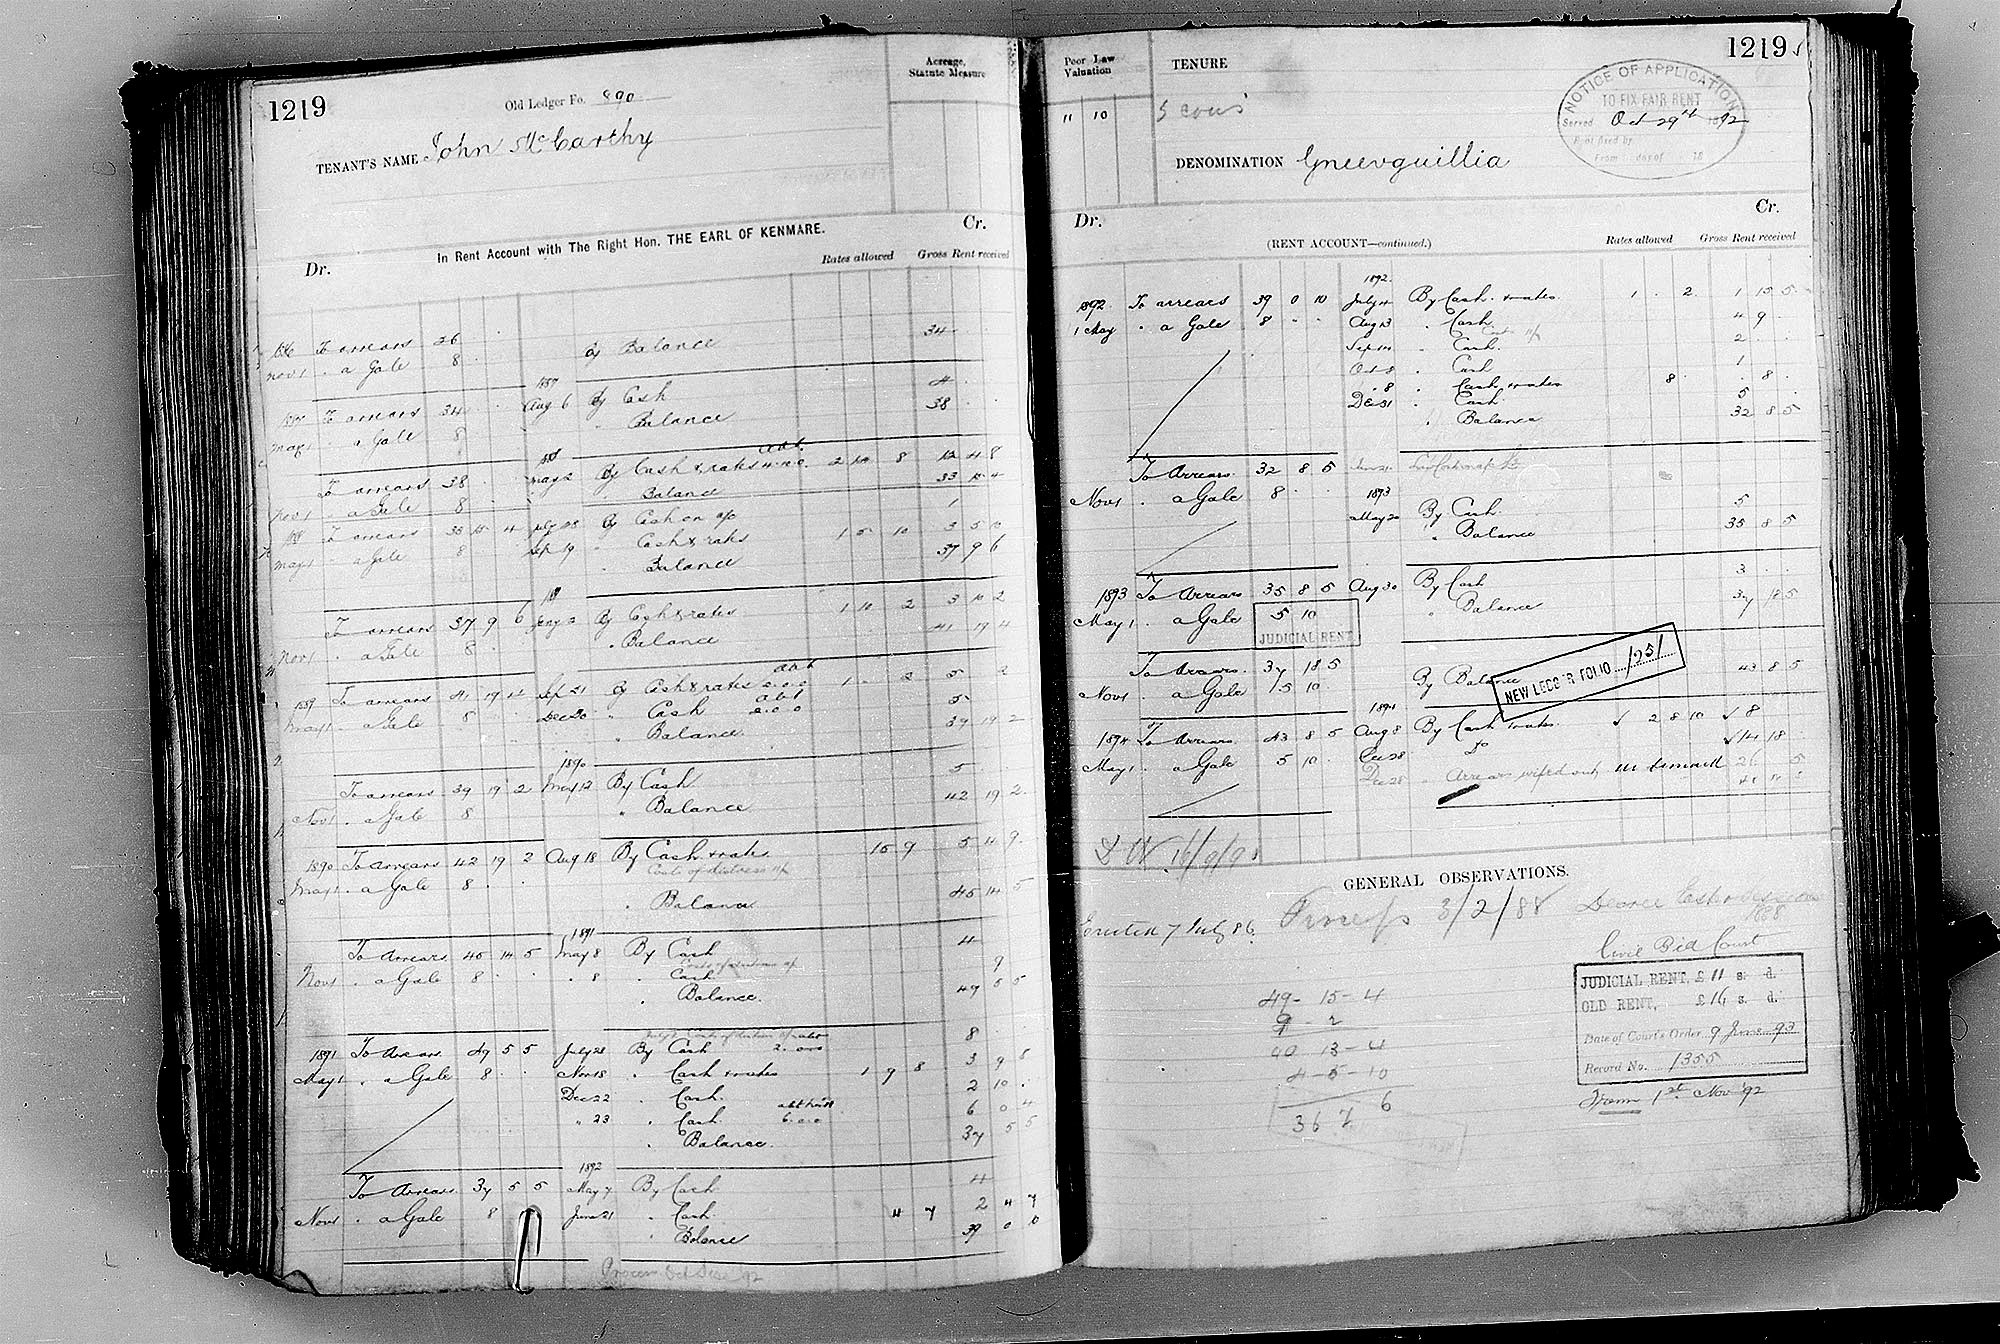 1219
Old Ledger Fo. 890
Acreage, Statute Measure
TENANT'S NAME John McCarthy
Cr.
In Rent Account with The Right Hon. THE EARL OF KENMARE.
Dr.
Rates allowed Gross Rent received
1886 To arrears 26 By Balance 34
Nov 1 " a Gale 8
1887
1887 To arrears 34 Aug 6 By Cash 4
May 1 " a Gale 8 " Balance 38
To arrears 38 May 2 By Cash & rates 2 8 12 4 8
Nov 1 " a Gale 8 " Balance 33
1888 To arrears 33 15 4 By Cash on a/c 1
May 1 " a Gale 8 Sep 19 " Cash & rates 1 5 10 3 5 10
" Balance 37 9 6
To arrears 37 9 6 By Cash & rates 1 10 2 3 10 2
Nov 1 " a Gale 8 " Balance 41 19 4
1889 To arrears 41 19 4 Sep 21 By Cash & rates 1 2 5 2
May 1 " a Gale 8 Dec 20 " Cash 5
" Balance 39 19 2
1890
To arrears 39 19 2 May 12 By Cash 5
Nov 1 " a Gale 8 " Balance 42 19 2
1890 To arrears 42 19 2 Aug 18 By Cash & rates 15 9 5 4 9
Costs of distress
May 1 " a Gale 8 " Balance 45 14 5
1891
To Arrears 45 14 5 May 8 By Cash 4
Nov 1 " a Gale 8 " 8 " Cash 9
" Balance 49 5 5
1891 To Arrears 49 5 5 July 28 By Cash 8
May 1 " a Gale 8 Nov 18 " Cash & rates 1 9 8 3 9 8
Dec 22 " Cash 2 10
" 23 " Cash 6 0 4
" Balance 37 5 5
1892
To Arrears 37 5 5 May 7 By Cash 4
Nov 1 " a Gale 8 June 21 " Cash 4 7 2 4 7
" Balance 39 0 10
1219
Poor Law Valuation
TENURE
" 10
NOTICE OF APPLICATION
TO FIX FAIR RENT
Served Oct 29th 1892
From day of 18
DENOMINATION Gneevguillia
Dr.
Cr.
(RENT ACCOUNT—continued.)
Rates allowed Gross Rent received
1892
1892 To arrears 39 0 10 July 4 By Cash & rates 1 . 2 1 15 5
1 May " a Gale 8 Aug 13 " Cash 4 9
Sep 14 " Cash 2
Oct 8 " Cash 1
" 8 " Cash & rates 8 8
Dec 31 " Cash 5
" Balance 32 8 5
To Arrears 32 8 5
Nov 1 a Gale 8 1893
May 20 By Cash 5
" Balance 35 8 5
1893 To Arrears 35 8 5 Aug 30 By Cash 3
May 1 " a Gale 5 10 " Balance 37 18 5
JUDICIAL RENT
To Arrears 37 18 5 By Balance 43 8 5
Nov 1 " a Gale 5 10
NEW LEDGER FOLIO 1251
1894
1894 To Arrears 43 8 5 Aug 8 By Cash & rates 2 8 10 8
May 1 " a Gale 5 10 Dec 28 Do 14 18
Dec 28 " Arrears wiped out 26 5
GENERAL OBSERVATIONS.
Process 3/2/88 Decree
Evicted 7 July 86
1888
Civil Bill Court
JUDICIAL RENT, £11 s. d.
OLD RENT, £16 s. d.
Date of Court's Order 9 June 93
Record No. 1355
From 1st Nov '92
49-15-4
9-2
40 13-4
4-5-10
36 7 6